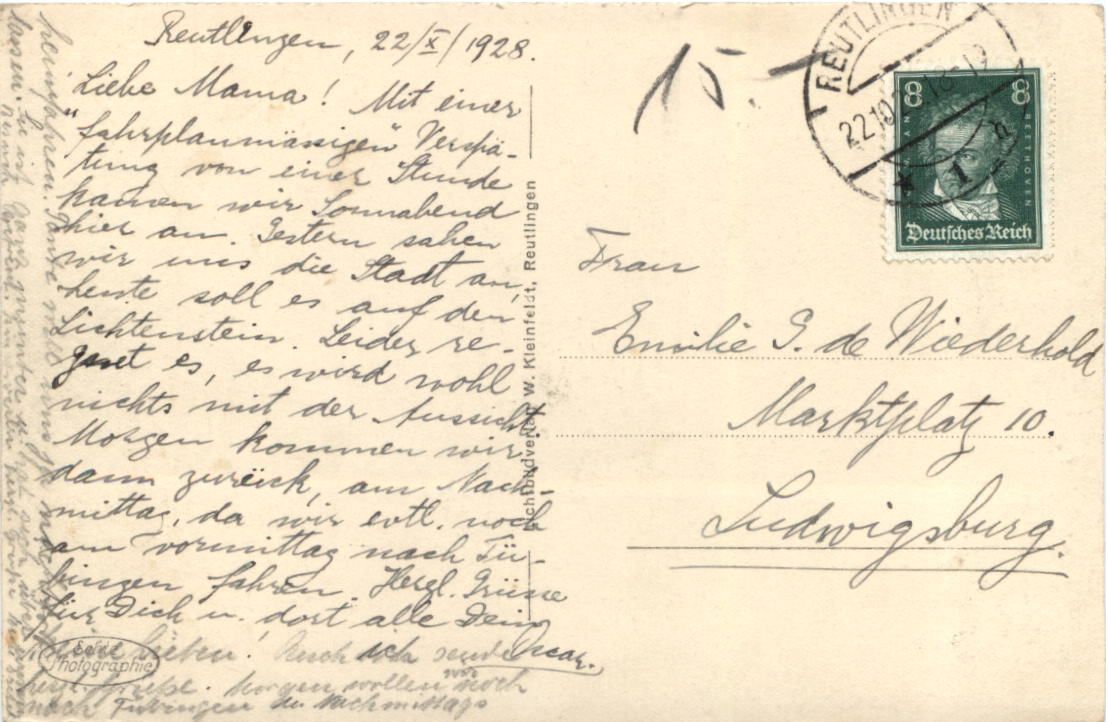 Reutlingen, 22/X/1928.
Liebe Mama! Mit einer
"fahrplanmässigen" Verspä-
tung von einer Stunde
kamen wir Sonnabend
hier an. Gestern sahen
wir uns die Stadt an,
heute soll es auf den
Lichtenstein. Leider re-
gnet es, es wird wohl
nichts mit der Aussicht.
Morgen kommen wir
dann zurück, am Nach-
mittag, da wir evtl. noch
am vormittag nach Tü-
bingen fahren. Herzl. Grüsse
für Dich u. dort alle Dein
Oscar.
Ihr Lieben! Auch ich sende
herzl. Grüße. Morgen wollen wir noch
nach Tübingen u. Nachmittags
heimfahren. Tante
lassen. Sie ist
Echte
Photographie
Lichtbildverlag W. Kleinfeldt, Reutlingen
15.-
REUTLINGEN
22.10.
* 1
8 8
BEETHOVEN
Deutsches Reich
Frau
Emilie G. de Wiederhold
Marktplatz 10.
Ludwigsburg.